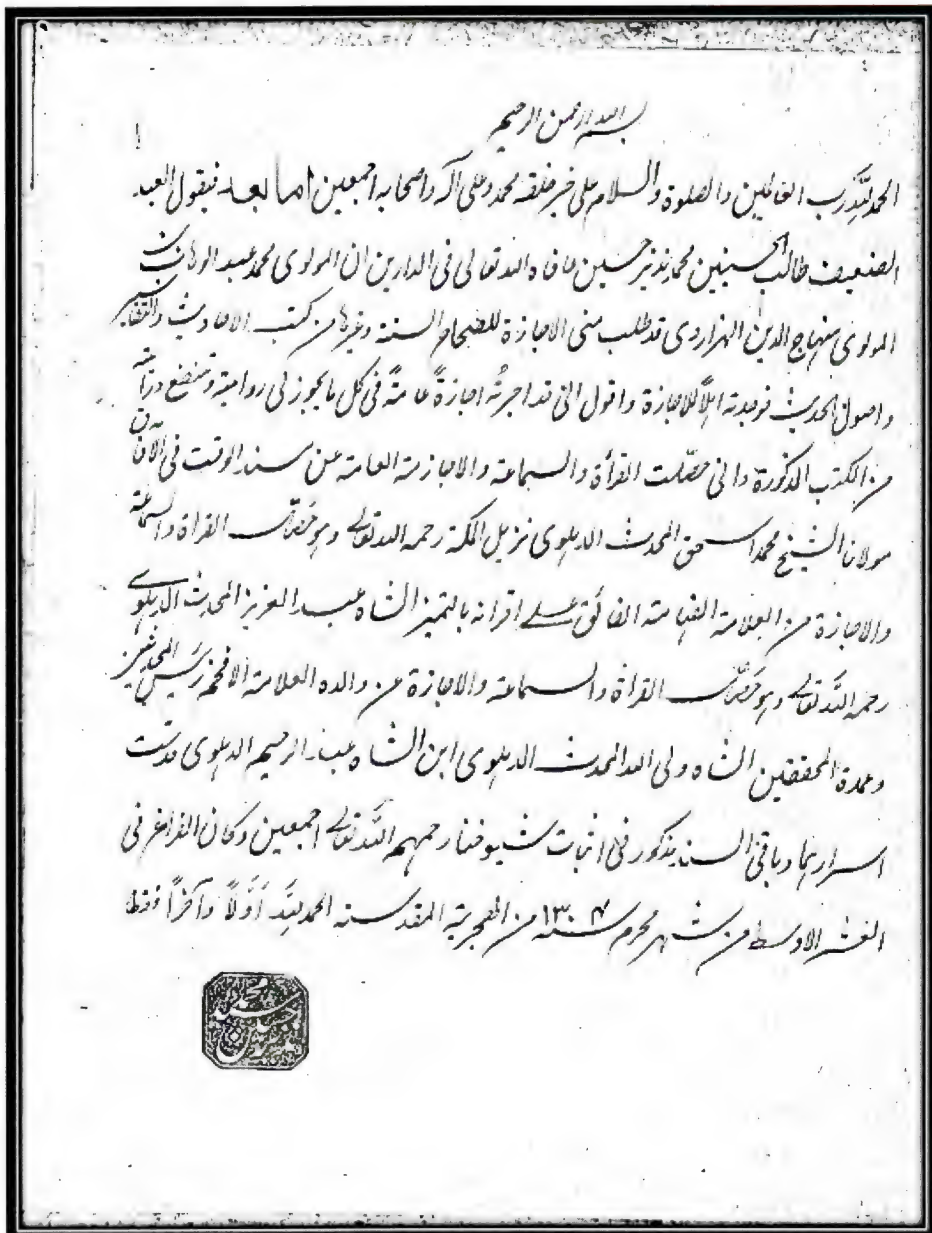 بسم الله الرحمن الرحيم
الحمد لله رب العالمين والصلوة والسلام على خير خلقه محمد وعلى آله واصحابه اجمعين اما بعد فيقول العبد
الضعيف طالب الحسنيين محمد نذير حسين عافاه الله تعالى فى الدارين ان المولوى محمد عبد الوهاب بن
المولوى منهاج الدين الهزاروى قد طلب منى الاجازة للصحاح الستة وغيرها من كتب الاحاديث والتفاسير
واصول الحديث فوجدته اهلاً للاجازة واقول انى قد اجزتُه اجازةً عامةً فى كل ما يجوز لى روايته وتنفع درايته
من الكتب المذكورة وانى حصّلت القرأة والسماعة والاجازة العامة عن سند الوقت فى الآفاق
مولانا الشيخ محمد اسحق المحدث الدهلوى نزيل المكة رحمه الله تعالى وهو حصّل القراة والسماعة
والاجازة من العلامة الفهامة الفائق على اقرانه بالتميز الشاه عبد العزيز المحدث الدهلوى
رحمه الله تعالى وهو حصّل القراة والسماعة والاجازة عن والده العلامة الافخم رئيس المحدثين
وعمدة المحققين الشاه ولى الله المحدث الدهلوى ابن الشاه عبد الرحيم الدهلوى قدست
اسرارهما وباقى السند مذكور فى اثبات شيوخنا رحمهم الله تعالى اجمعين وكان الفراغ فى
العشر الاوسط من شهر محرم سنه ۱۳۰۴ من الهجرية المقدسه الحمد لله اَوَّلاً وآخراً فقط
محمد نذير حسين